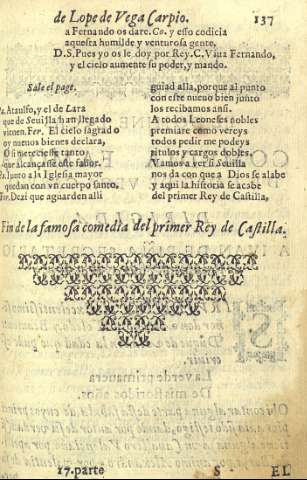 de Lope de Vega Carpio. 137
a Fernando os dare. Co. y esso codicia
aquesta humilde y venturosa gente,
D.S. Pues yo os le doy por Rey. C. Viua Fernando,
y el cielo aumente su poder, y mando.
Sale el page.
Pa. Ataulfo, y el de Lara
que de Seuilla han llegado
vienen. Fer. El cielo sagrado
oy nueuos bienes declara,
O si mereciesse tanto,
que alcançasse este fauor.
Pa. Junto a la Iglesia mayor
quedan con vn cuerpo santo.
Fer. Dezi que aguarden alli
guiad alla, porque al punto
con este nueuo bien junto
los recibamos ansi.
A todos Leoneses nobles
premiare como vereys
todos pedir me podeys
titulos y cargos dobles.
Vamos a ver si Seuilla
nos da con que a Dios se alabe
y aqui la historia se acabe
del primer Rey de Castilla,
Fin de la famosa comedia del primer Rey de Castilla.
17. parte S EL